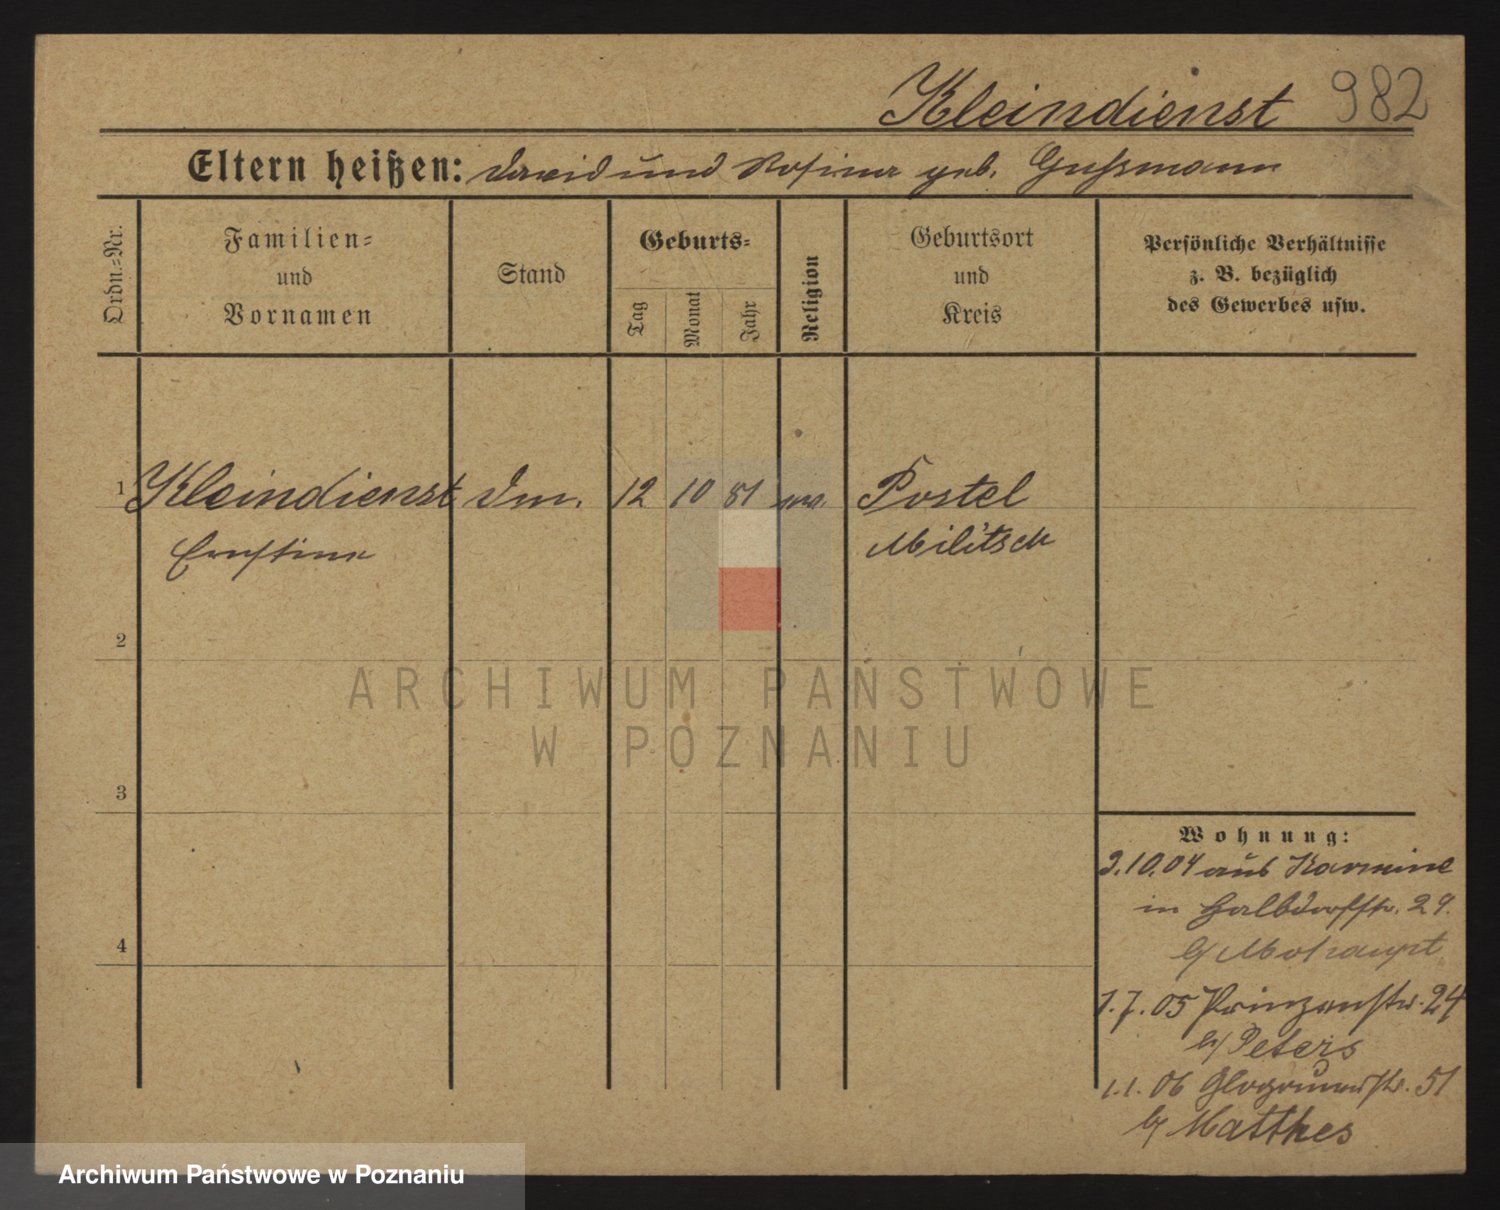 Kleindienst 982
Eltern heißen: David und Rosina geb. Gußmann
Ordn.=Nr.
Familien=
und
Vornamen
Stand
Geburts=
Tag
Monat
Jahr
Religion
Geburtsort
und
Kreis
Persönliche Verhältnisse
z. B. bezüglich
des Gewerbes usw.
1 Kleindienst 12 10 81 Postel
Ernstine Militsch
2
3
4
Wohnung:
3.10.04 aus Karmine
in Halbdorfstr. 29.
b/ Mohaupt
1.7.05 Prinzenstr. 24
b/ Peters
1.1.06 Glogauerstr. 51
b/ Matthes
ARCHIWUM PAŃSTWOWE
W POZNANIU
Archiwum Państwowe w Poznaniu